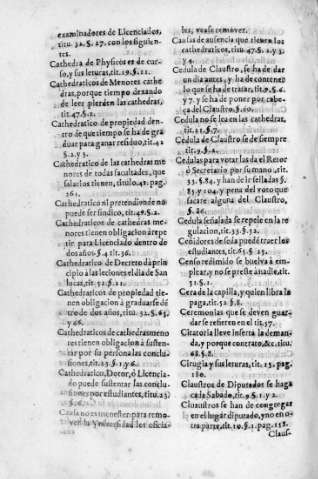 examinadores de Licenciados,
titu. 32. §. 27. con los siguien
tes.
Cathedra de Physicos es de cur-
so, y sus leturas, tit. 19. §. 11.
Cathedraticos de Menores cathe
dras, porque tiempo dexando
de leer pierden las cathedras,
tit. 47. §. 2.
Cathedratico de propiedad den-
tro de que tiempo se ha de gra
duar para ganar residuo, tit. 42
§. 2. y 3.
Cathedraticos de las cathedras me
nores de todas facultades, que
salarios tienen, titulo. 41. pag.
261.
Cathedratico ni pretendiente no
puede ser sindico, tit. 49. §. 2.
Cathedraticos de cathedras me-
nores tienen obligacion à repe
tir para Licenciado dentro de
dos años. §. 4 tit. 36.
Cathedratico de Decreto dà prin
cipio a las leciones el dia de San
lucas, tit. 21. §. 21.
Cathedraticos de propiedad tie-
nen obligacion à graduarse dẽ
tro de dos años, titu. 32. §. 65.
y 66.
Cathedraticos de cathedras meno
res tienen obligacion à susten-
tar por su persona las conclu-
siones, tit. 23. §. 1. y 6.
Cathedratico, Dotor, ò Licencia-
do puede sustentar las conclu
siones por estudiantes, titu. 23
§. 6.
Causa no es menester para remo-
ver la Vniversidad los oficia
les, vea se remover.
Causas de ausencia que tienen los
cathedraticos, titu 47. §. 2. y 3.
y 4.
Cedula de Claustro, se ha de dar
un dia antes, y ha de contener
lo que se ha de tratar, tit. 9. §. 6
y 7. y se ha de poner por cabe-
ça del Claustro, §. 10.
Cedula no se lea en las cathedras,
tit. 21. §. 7.
Cedula de Claustro se de siempre
tit. 9. §. 2.
Cedulas para votar las da el Retor
ò Secretario por su mano, tit.
33. §. 84. y han de ir selladas §.
83. y 104. y pena del voto que
sacare alguna del Claustro,
§. 26.
Cedula señalada se repele en la re
gulacion, tit. 33. §. 52.
Ceñidores de seda puede traer los
estudiantes, tit. 65. §. 23.
Censo redimido se buelva à em-
plear, y no se preste à nadie, tit.
51. §. 2.
Cera de la capilla, y quien libra la
paga, tit. 52. §. 2.
Ceremonias que se deven guar-
dar se refieren en el tit. 57.
Citatoria lleve inserta la deman-
da, y porque contrato, &c. titu.
68. §. 8.
Cirugia y sus leturas, tit. 15. pag.
180.
Claustros de Diputados se haga
cada Sabado, tit. 9. §. 1. y 2.
Cluaustros se han de congregar
en el lugar diputado, y no en o-
tra parte, tit. 10. §. 1. pag. 153.
Claus-